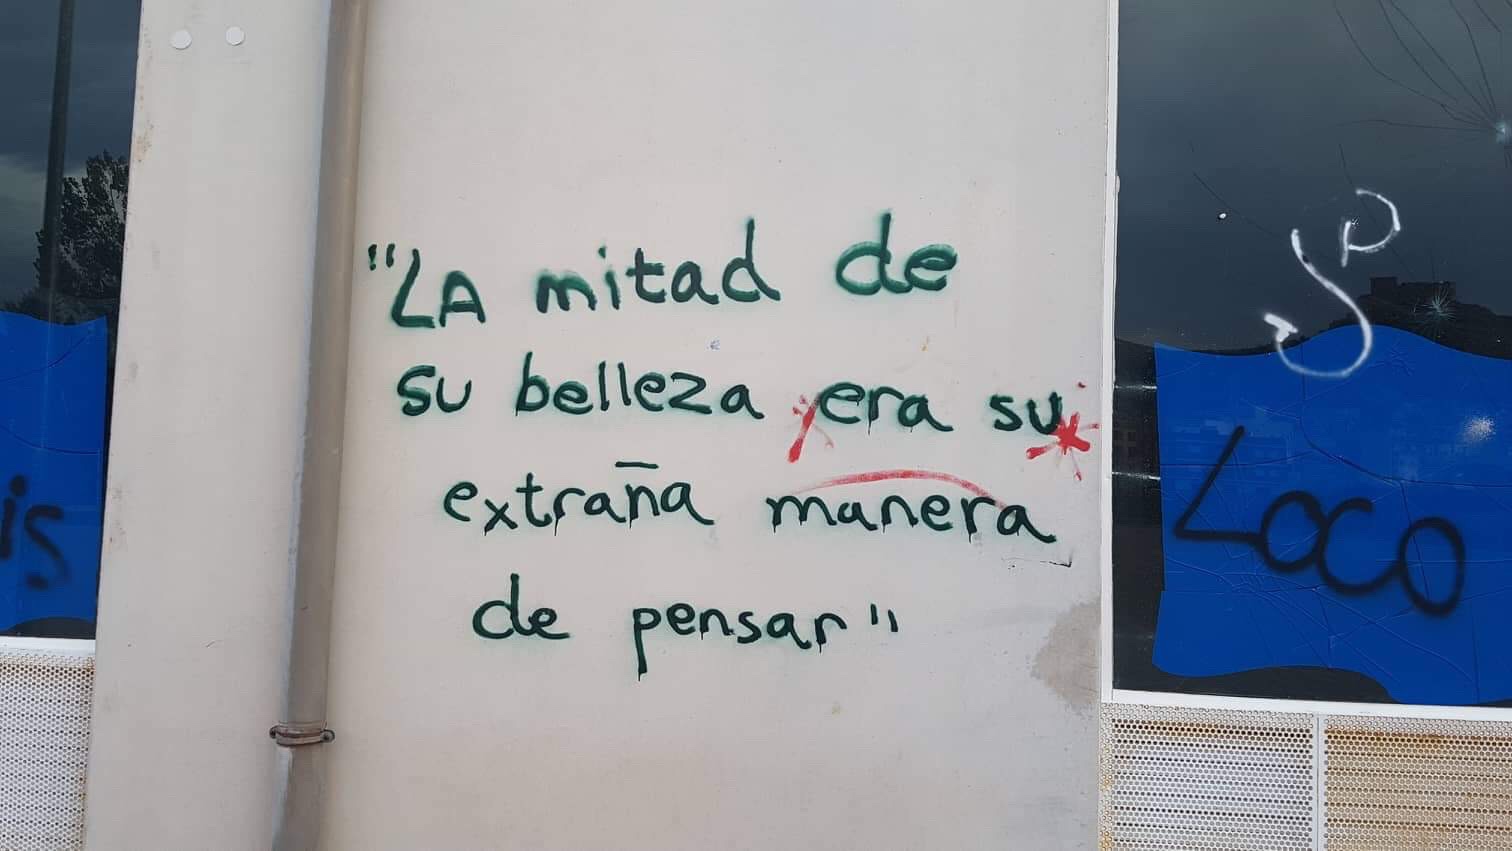 "LA mitad de
su belleza era su
extraña manera
de pensar"
is
SP
Loco